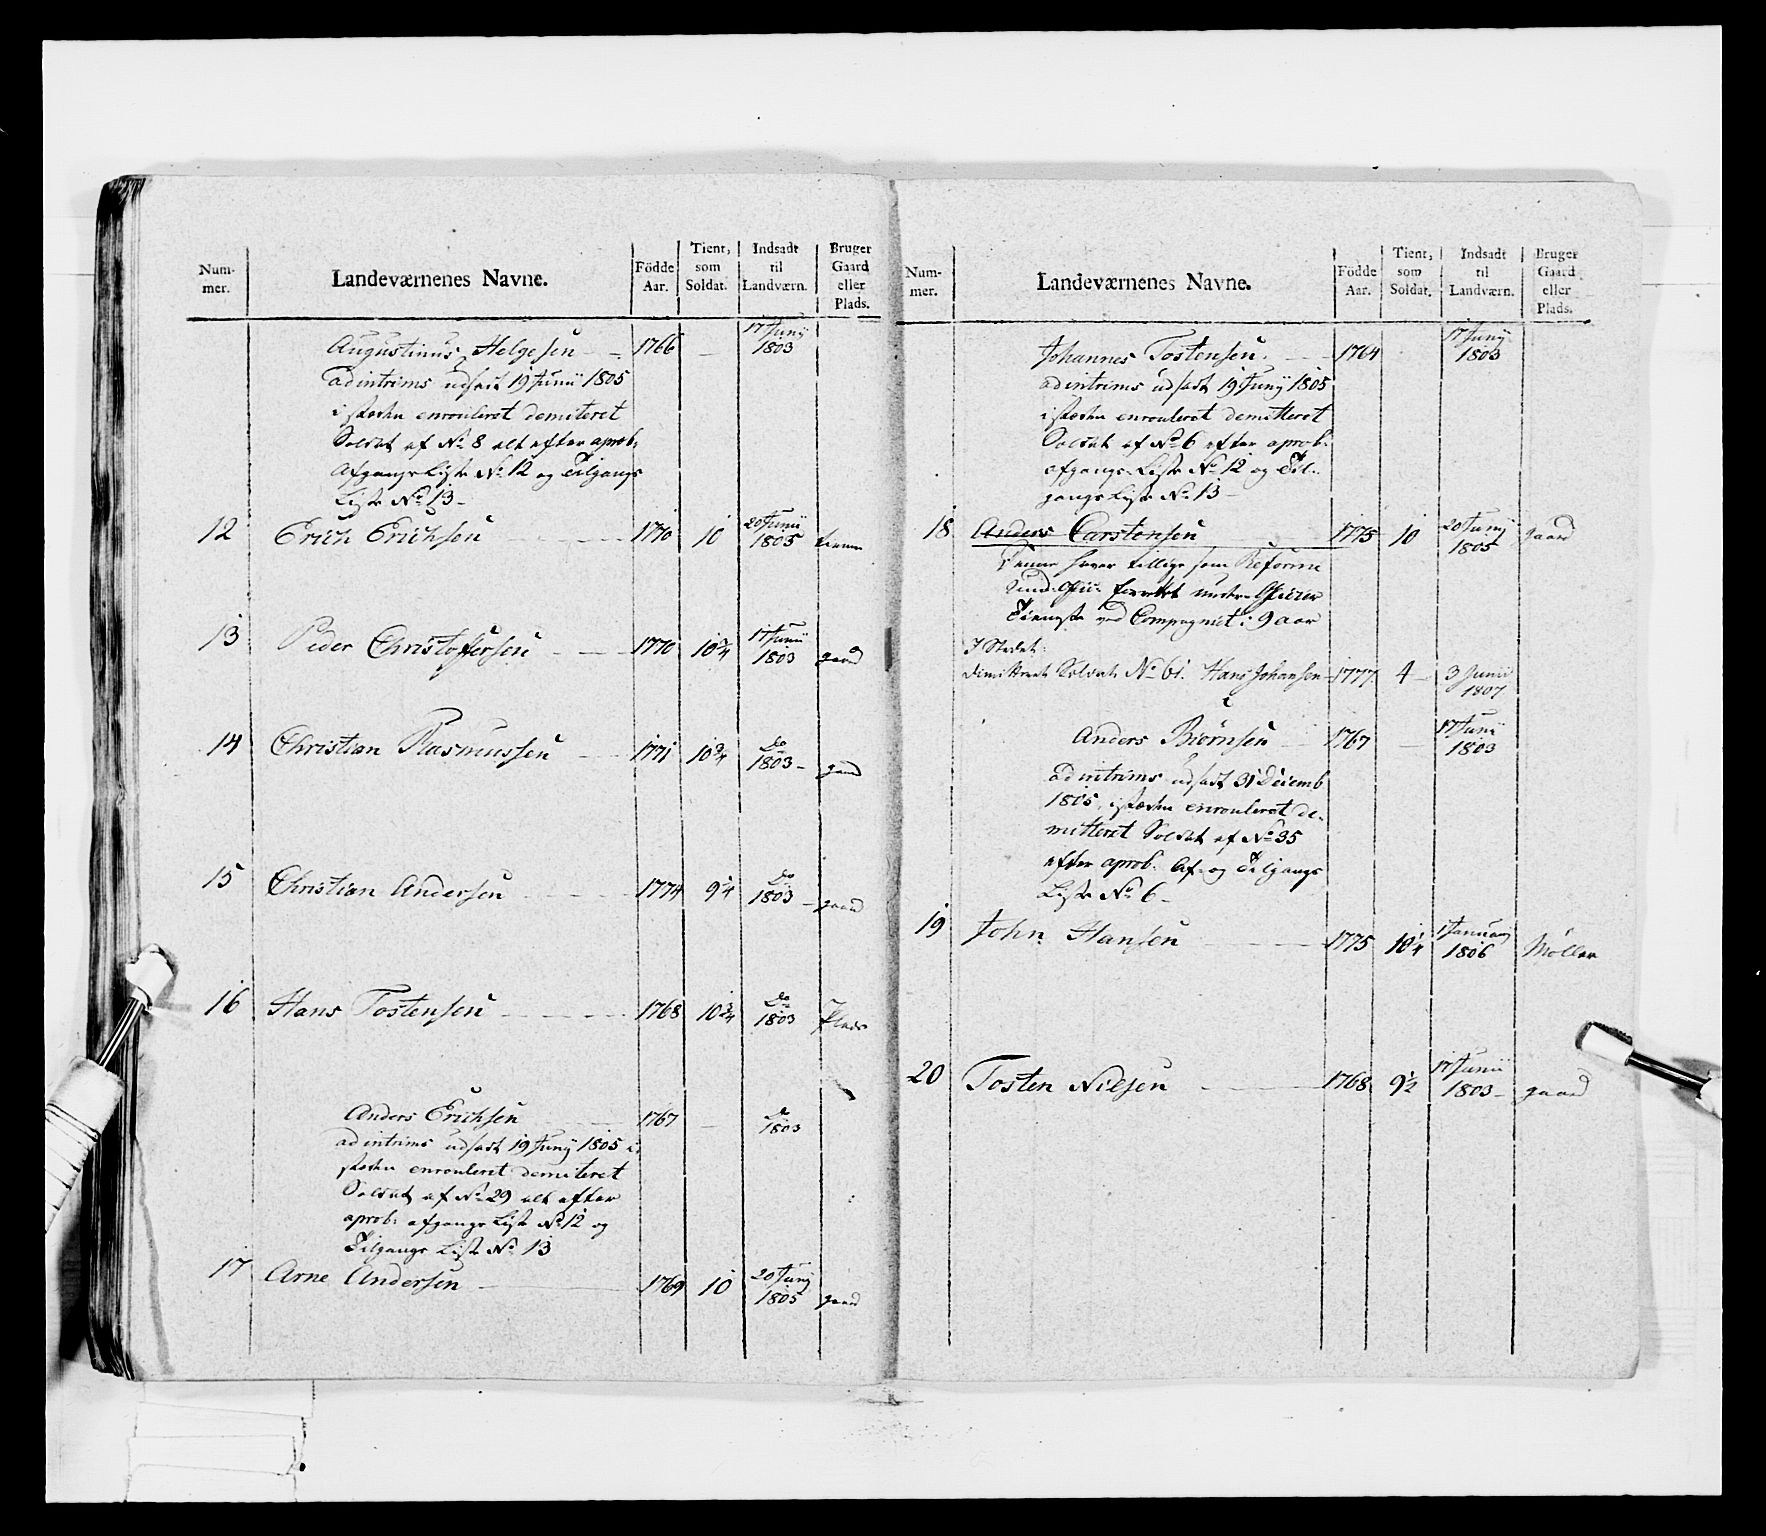 Num-
mer.
Landeværnenes Navne.
Födde
Aar.
Tient,
som
Soldat.
Indsadt
til
Landværn.
Bruger
Gaard
eller
Plads.
Augustinus Helgesen 1766 — 17 Junij 1803
ad intrims udsadt 19 Junii 1805
i stæden enrouleret demiteret
Soldat af No 8 alt efter aprob:
Afgangs Liste No 12 og Tilgangs
Liste No 13
12 Erich Erichsen 1770 10 20 Junii 1805
13 Peder Christoffersen 1770 10 3/4 17 Junii 1803 gaard
14 Christian Rasmussen 1771 10 3/4 Do 1803 gaard
15 Christian Andersen 1774 9 1/4 Do 1803 gaard
16 Hans Tostensen 1768 10 3/4 Do 1803 Plads
Anders Erichsen 1767 — do 1803
ad intrims udsadt 19 Junij 1805 i
stæden enrouleret demiteret
Soldat af No 29 alt efter
aprob: afgangs Liste No 12 og
Tilgangs Liste No 13
17 Arne Andersen 1769 10 20 Junij 1805 gaard
Num-
mer.
Landeværnenes Navne.
Födde
Aar.
Tient,
som
Soldat.
Indsadt
til
Landværn.
Bruger
Gaard
eller
Plads.
Johannes Tostensen 1764 17 Junij 1803
ad intrims udsadt 19 Junij 1805
i stæden enrouleret demitteret
Soldat af No 6 efter aprob:
afgangs Liste No 12 og Til-
gangs Liste No 13
18 Anders Carstensen 1775 10 20 Junij 1805 gaard
Denne haver tillige som Reforme
under
Tieneste ved Compagniet i 9 aar
I Stedet:
dimitteret Soldat No 61. Hans Johansen 1777 4 3 Junii 1807
Anders Biørnsen 1767 — 17 Junij 1803
ad intrims udsadt 31 Decemb
1805, i stæden enrouleret de-
mitteret Soldat af No 35
efter aprob. Af- og Tilgangs
Liste No 6
19 John Hansen 1775 10 1/4 1 Januarj 1806 Møller
20 Tosten Nielsen 1768 9 1/2 17 Junii 1803 gaard